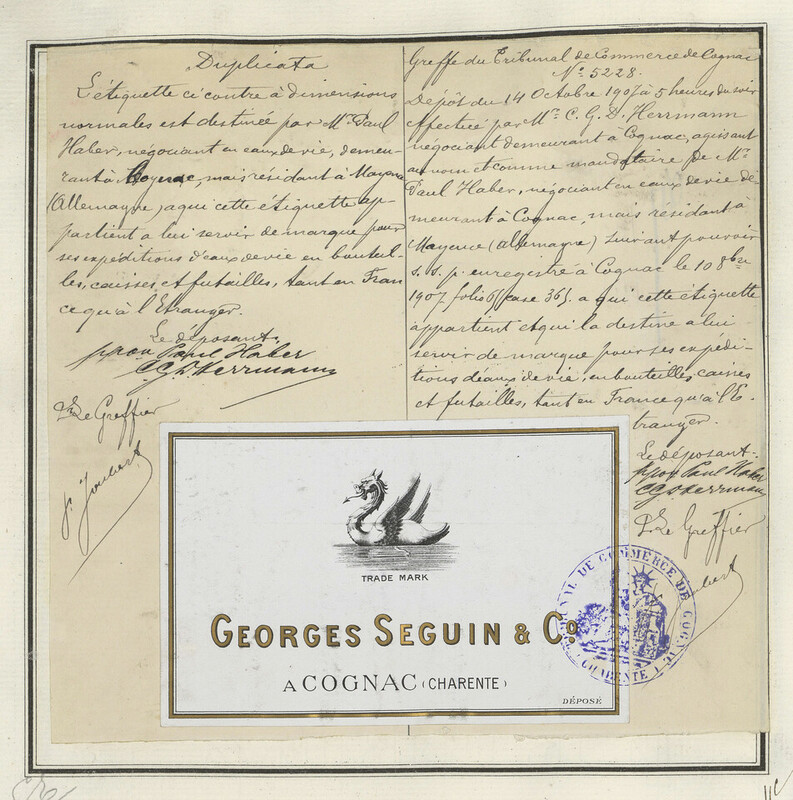 Duplicata
L'étiquette ci contre à dimensions
normales est destinée par Mr. Paul
Haber, négociant en eaux de vie, demeu-
rant à Cognac, mais résidant à Mayence
(Allemagne) a qui cette étiquette ap-
partient a lui servir de marque pour
ses expéditions d'eaux de vie en bouteil-
les, caisses et futailles, tant en Fran
ce qu'à l'Etranger.
Le déposant.
ppon Paul Haber
CGDHerrmann
Le Greffier
Joubert
Greffe du Tribunal de Commerce de Cognac
No. 5228.
Dépôt du 14 Octobre 1907 à 5 heures du soir
effectué par Mr. C. G. D. Herrmann
négociant demeurant à Cognac, agissant
au nom et comme mandataire de Mr.
Paul Haber, négociant en eaux de vie de
meurant à Cognac, mais résidant à
Mayence (Allemagne) suivant pouvoir
s. s. p. enregistré à Cognac le 10 8bre
1907 folio case 365. a qui cette étiquette
appartient et qui la destine a lui
servir de marque pour ses expédi-
tions d'eaux de vie, en bouteilles, caisses
et futailles, tant en France qu'à l'E-
tranger.
Le déposant.
ppon Paul Haber
CGDHerrmann
Le Greffier
TRADE MARK
GEORGES SEGUIN & Co.
A COGNAC (CHARENTE)
DÉPOSÉ
TRIBUNAL DE COMMERCE DE COGNAC
CHARENTE